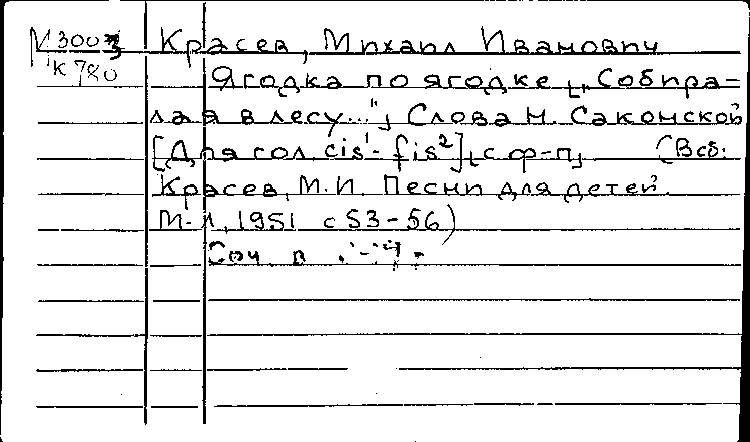 М3003 Красев, Михаил Иванович
К780 Ягодка по ягодке [„Собира-
лая в лесу..."] Слова Н. Саконской
[Для гол. cis¹-fis²] [с ф-п] (В сб:
Красев, М.И. Песни для детей.
М-Л, 1951 с 53-56)
Соч. в